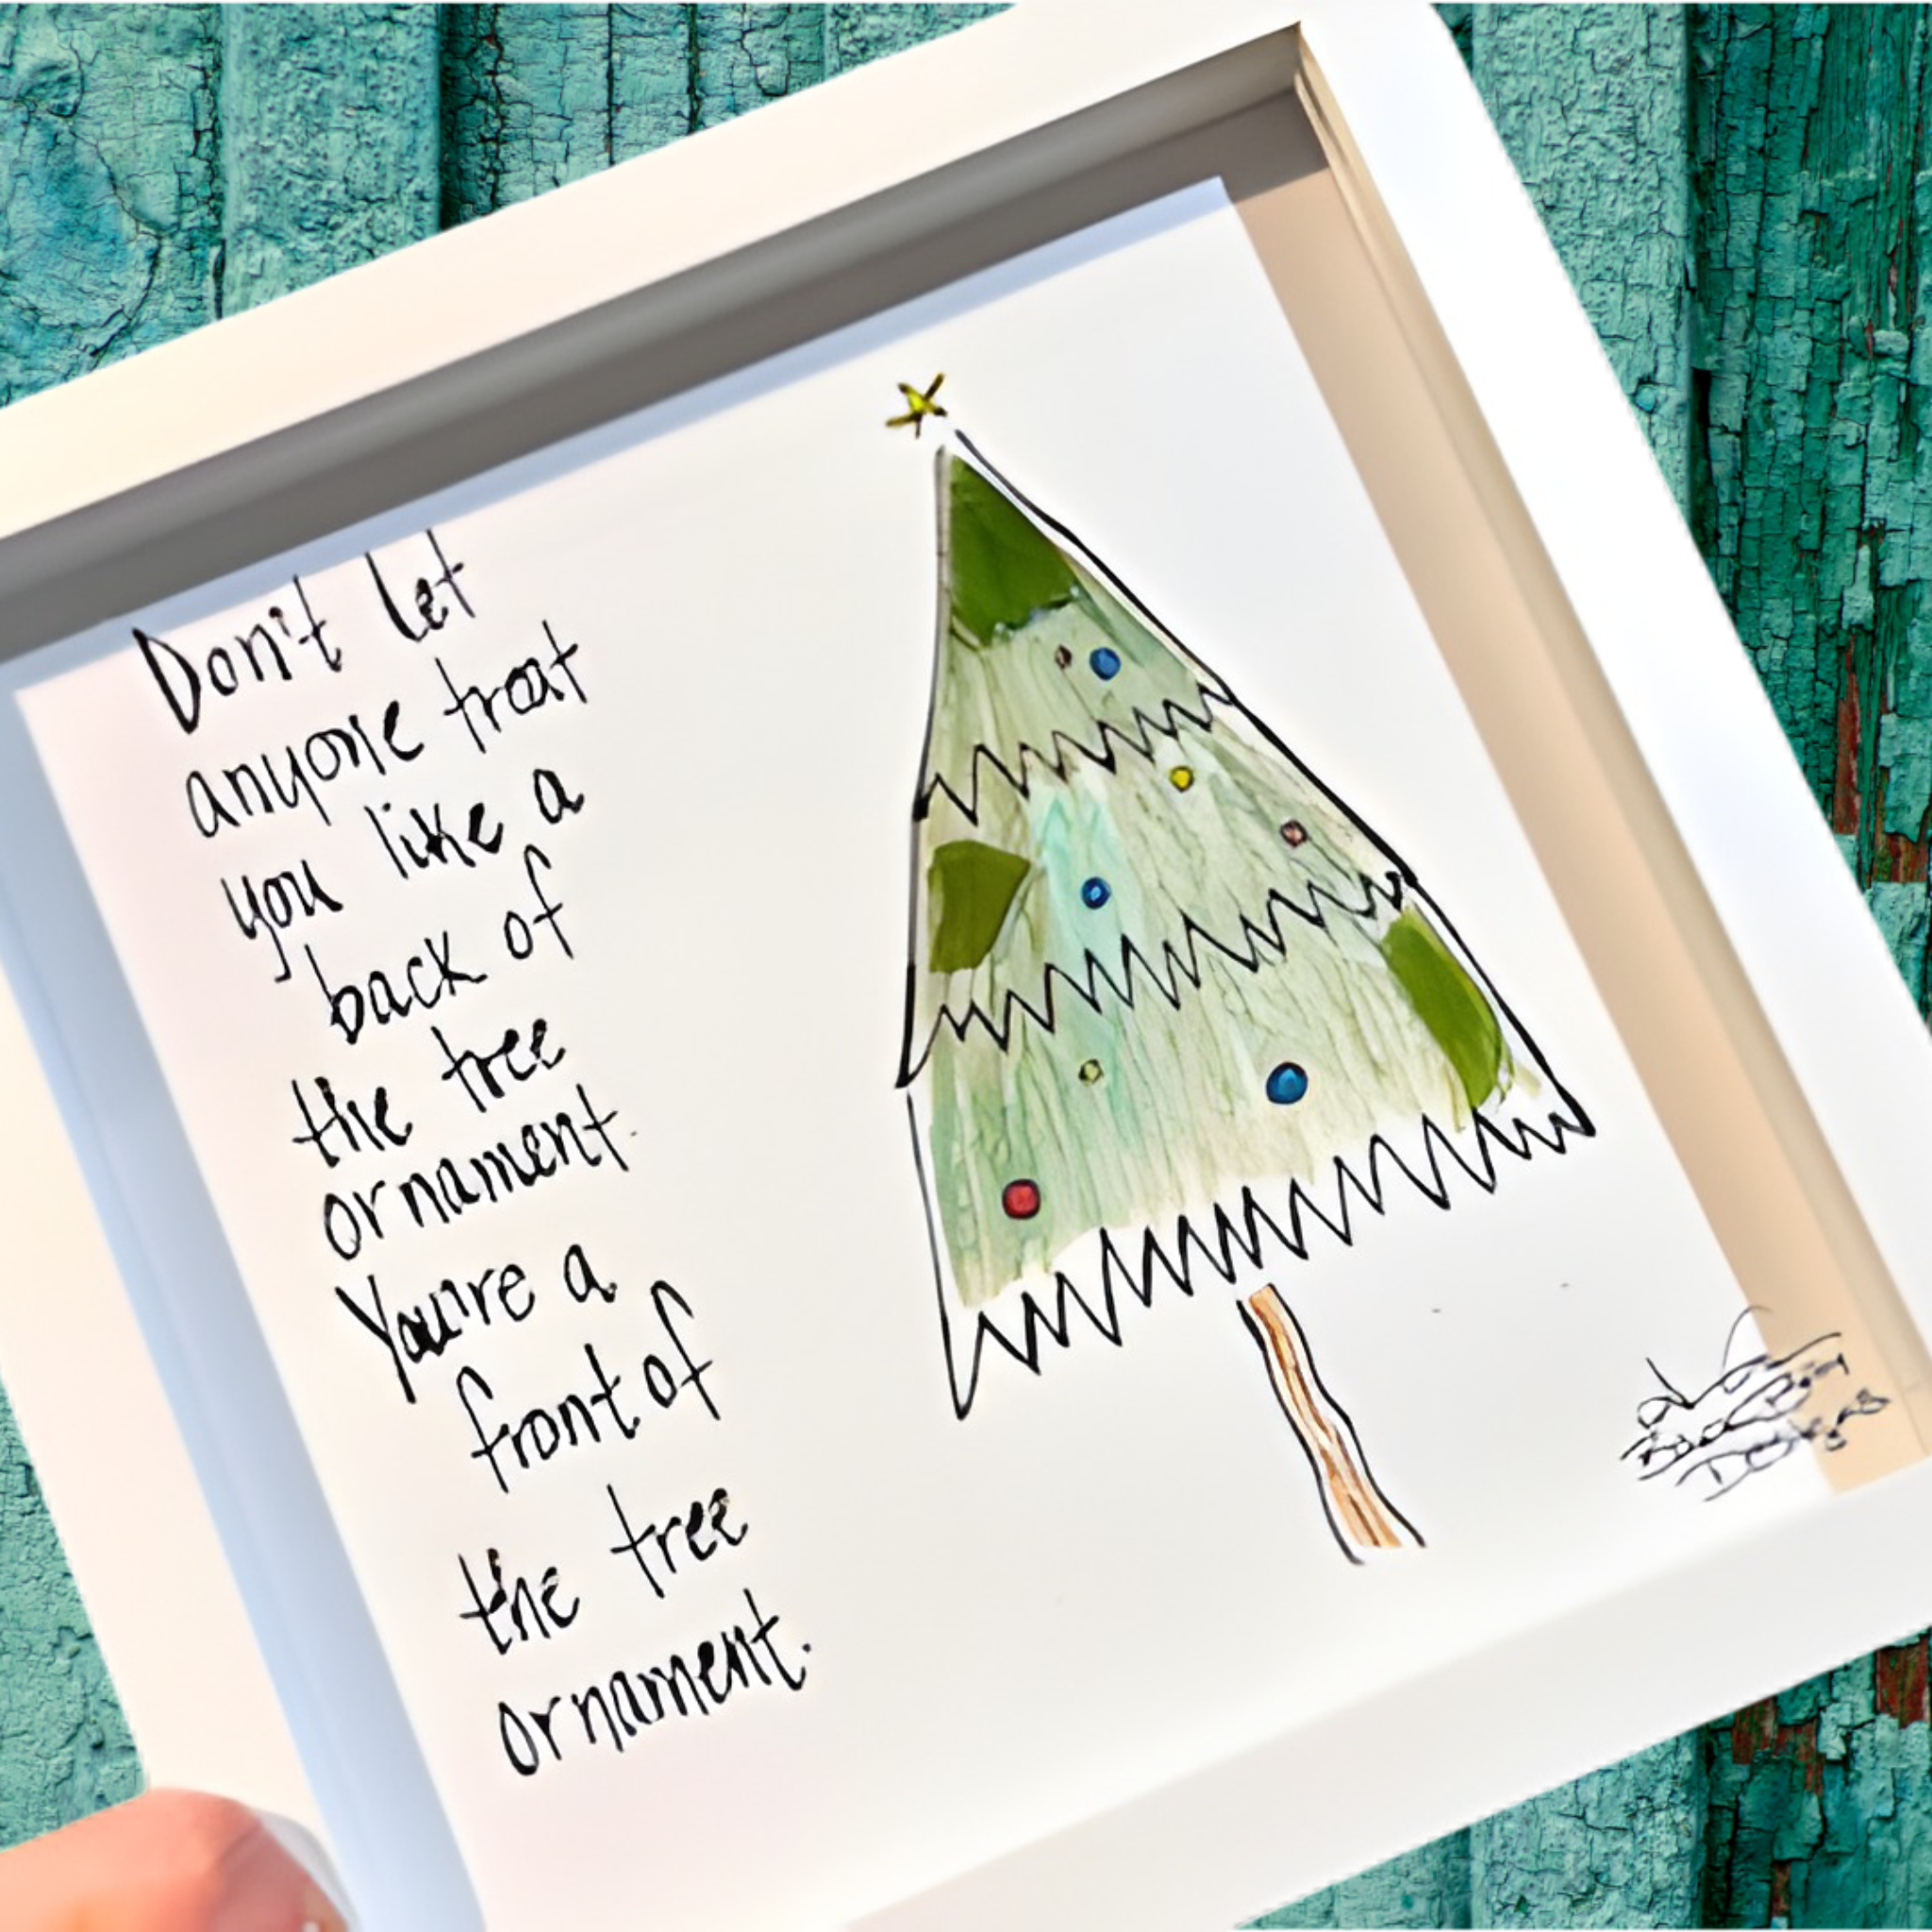 Don't let
anyone treat
you like a
back of
the tree
ornament.
You're a
front of
the tree
ornament.
Designs